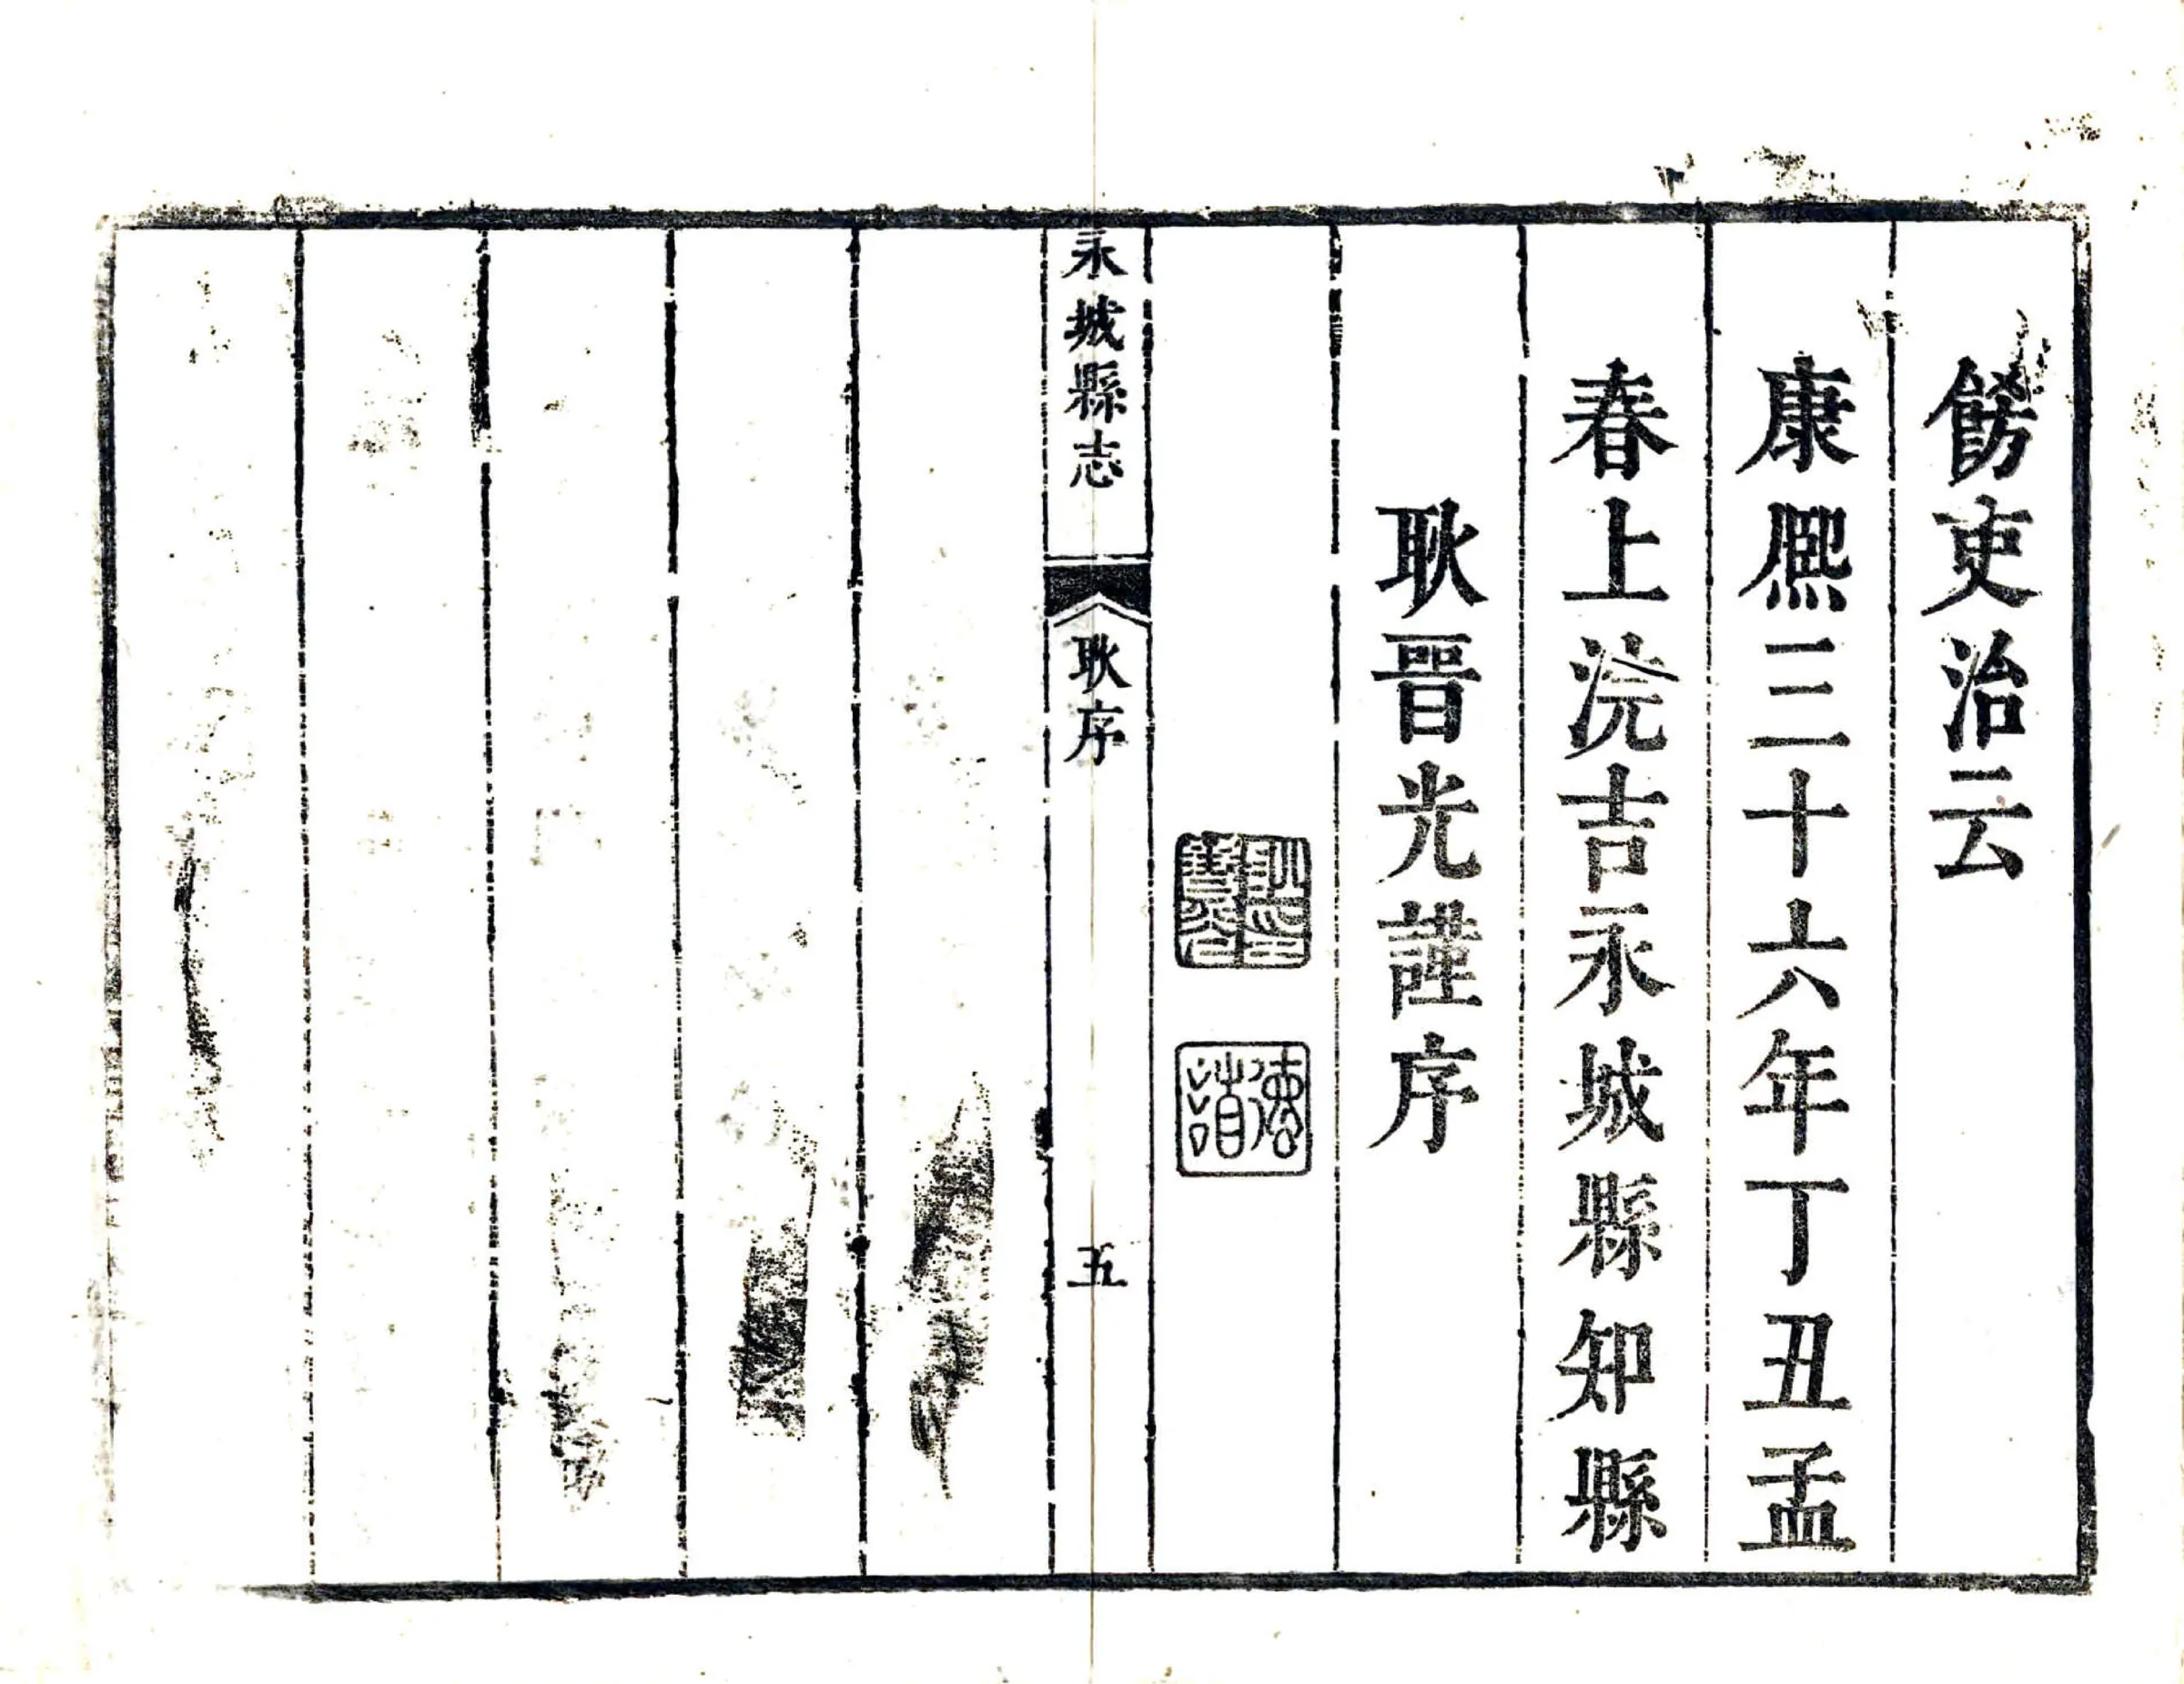 餝吏治云
康熙三十六年丁丑孟
春上浣吉永城縣知縣
耿晉光謹序
永城縣志
耿序
五